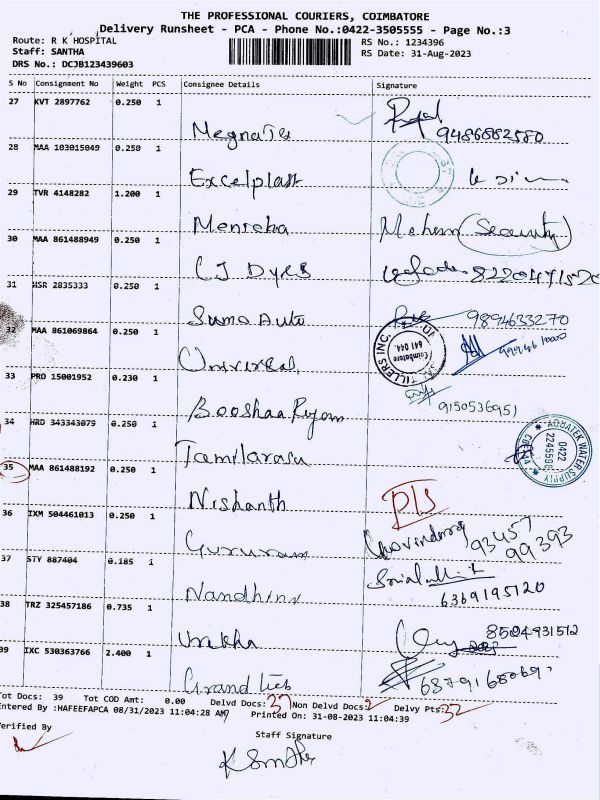 THE PROFESSIONAL COURIERS, COIMBATORE
Delivery Runsheet - PCA - Phone No.:0422-3505555 - Page No.:3
Route: R K HOSPITAL
RS No.: 1234396
Staff: SANTHA
RS Date: 31-Aug-2023
DRS No.: DCJB123439603
S No Consignment No Weight PCS Consignee Details Signature
27 KVT 2897762 0.250 1
9486882580
28 MAA 103015049 0.250 1
Excelplast
29 TVR 4148282 1.200 1
Menreha Mohan (Security)
30 MAA 861488949 0.250 1
CJ Dyes
31 HSR 2835333 0.250 1
Suma Auto 9894633270
32 MAA 861069864 0.250 1
TILLERS INC. Coimbatore 641 044.
Universal
33 PRO 15001952 0.230 1
9150536951
Booshaa
34 HRD 343343079 0.250 1
AQUATEK WATER SUPPLY 0422
Tamilarasu
35 MAA 861488192 0.250 1
Nishanth
36 IXM 504461013 0.250 1
Gururam 93457 99393
37 STY 887404 0.185 1
Nandhini 6369195120
38 TRZ 325457186 0.735 1
8504931512
39 IXC 530363766 2.400 1
Tot Docs: 39 Tot COD Amt: 0.00 Delvd Docs: 37 Non Delvd Docs: 2 Delvy Pts: 32
Entered By :HAFEEFAPCA 08/31/2023 11:04:28 AM Printed On: 31-08-2023 11:04:39
Verified By
Staff Signature